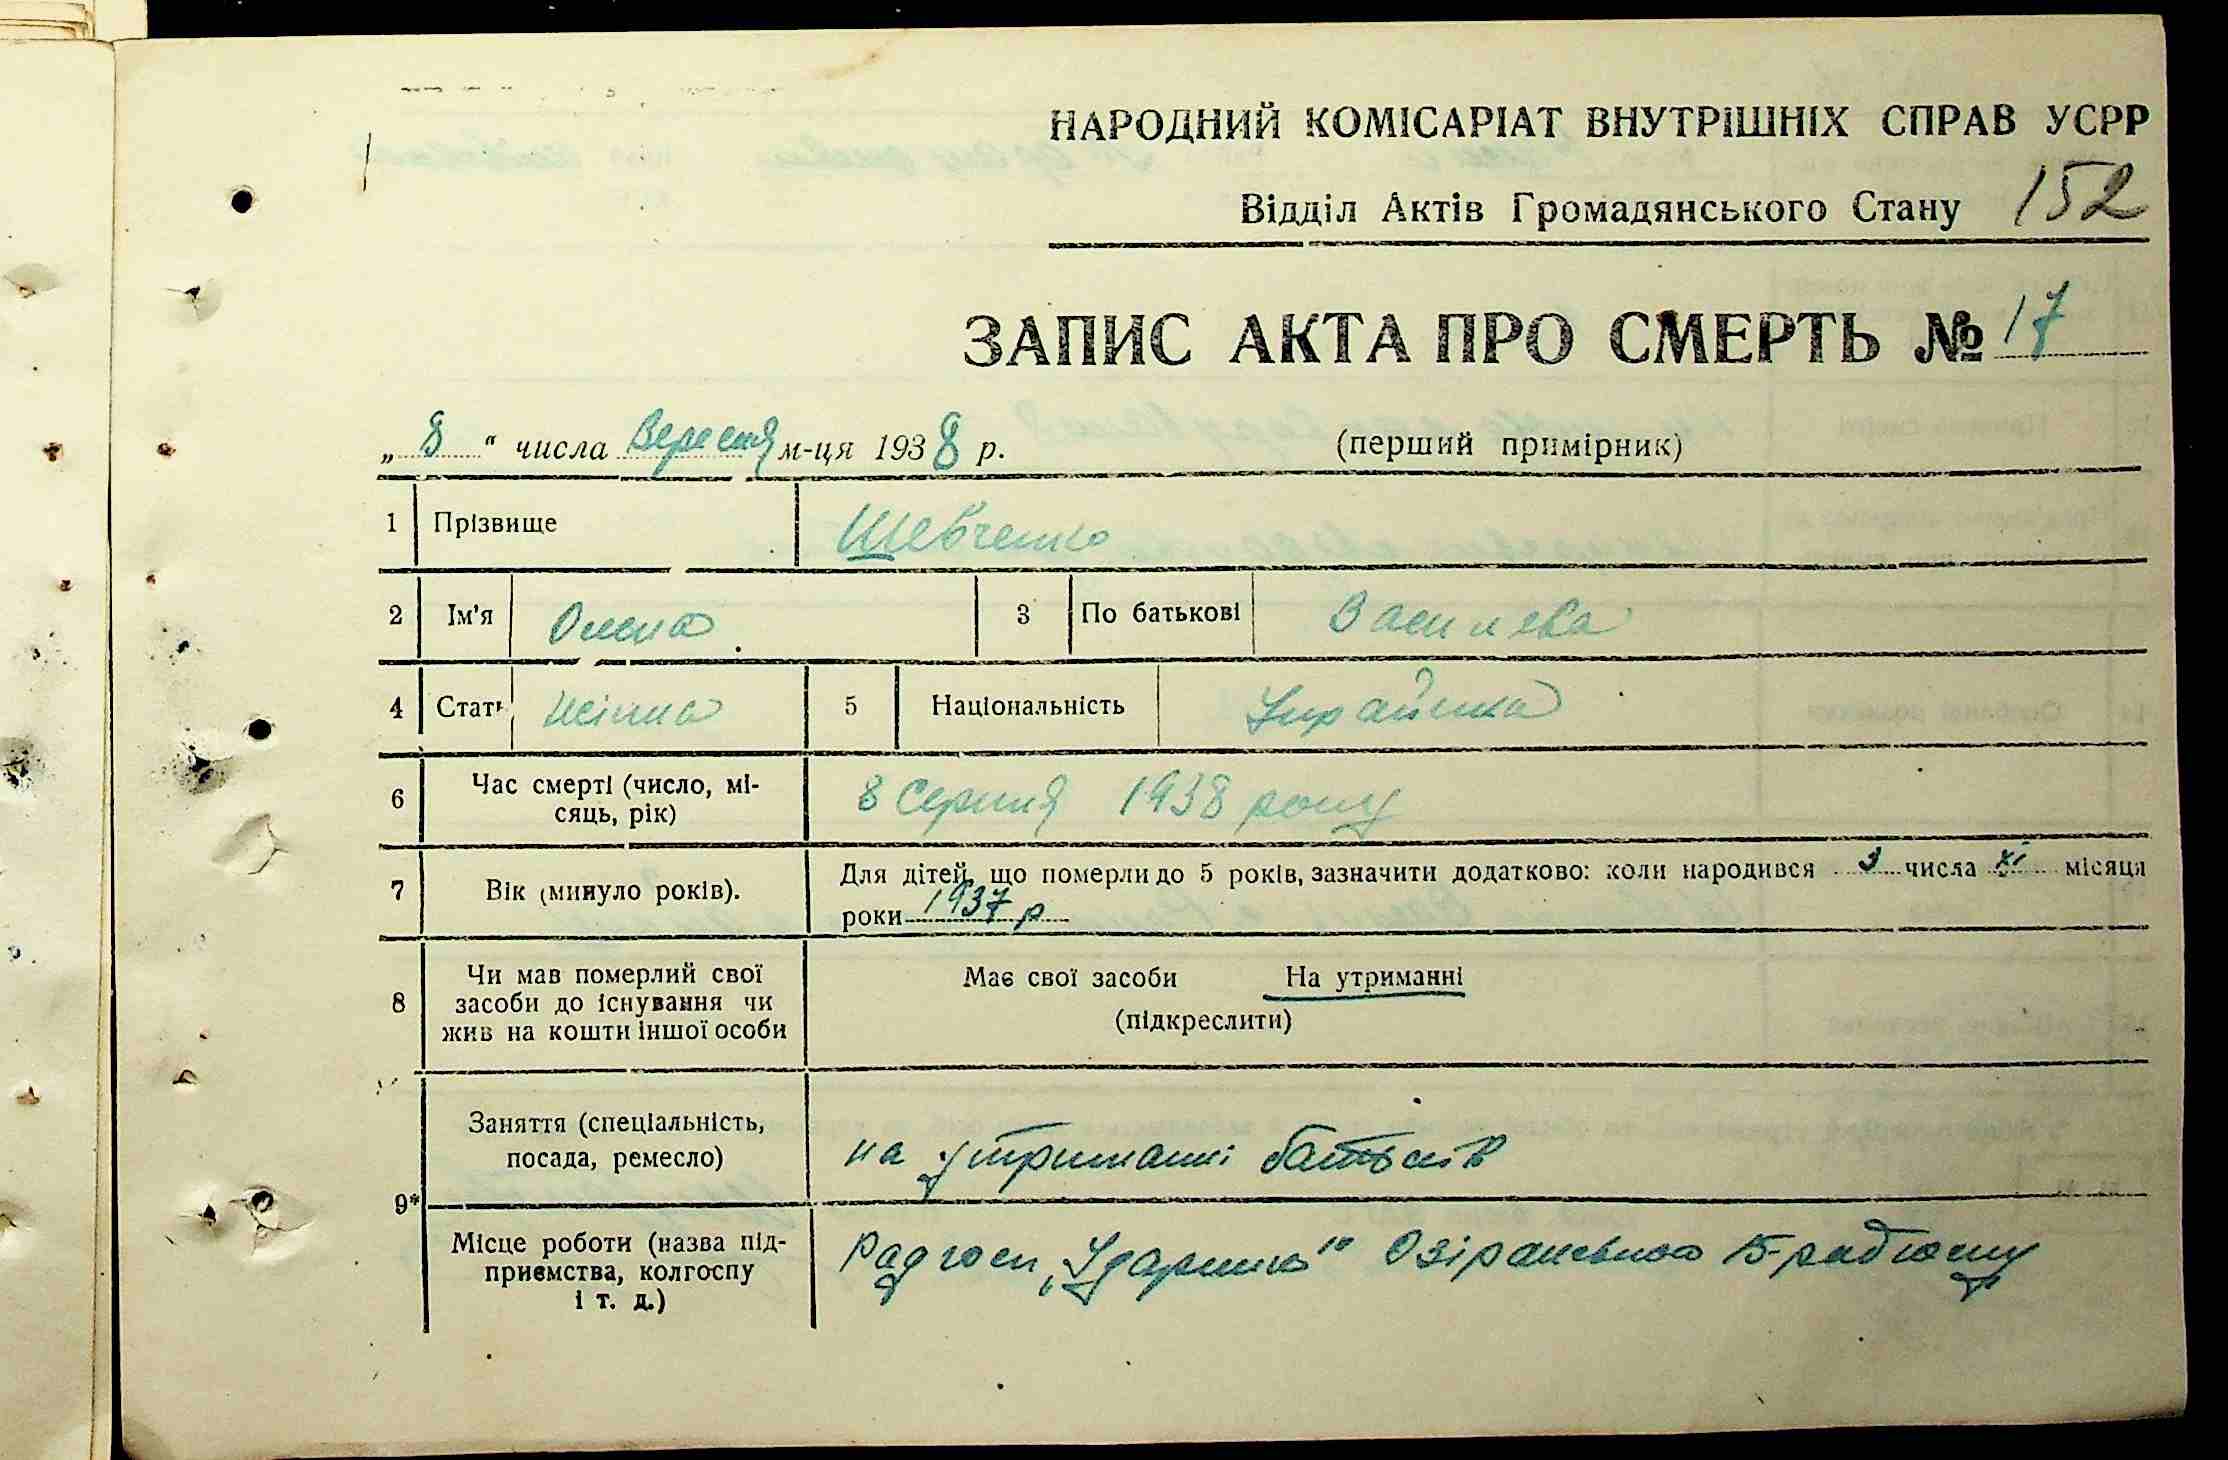 НАРОДНИЙ КОМІСАРІАТ ВНУТРІШНІХ СПРАВ УСРР
Відділ Актів Громадянського Стану 152
ЗАПИС АКТА ПРО СМЕРТЬ № 17
„8“ числа Вересня м-ця 1938 р. (перший примірник)
1 Прізвище Шевченко
2 Ім'я Олена 3 По батькові Василева
4 Стать жінка 5 Національність Українка
6 Час смерті (число, мі-
сяць, рік) 8 Серпня 1938 року
7 Вік (минуло років). Для дітей, що померли до 5 років, зазначити додатково: коли народився 3 числа XI місяця
роки 1937 р
8 Чи мав померлий свої
засоби до існування чи
жив на кошти іншої особи
Має свої засоби На утриманні
(підкреслити)
9*
Заняття (спеціальність,
посада, ремесло) на утриманні батьків
Місце роботи (назва під-
приємства, колгоспу
і т. д.)
Радгосп „Ударник"